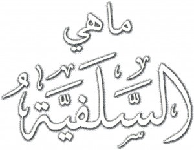 ما هي
السَّلَفِيَّةُ